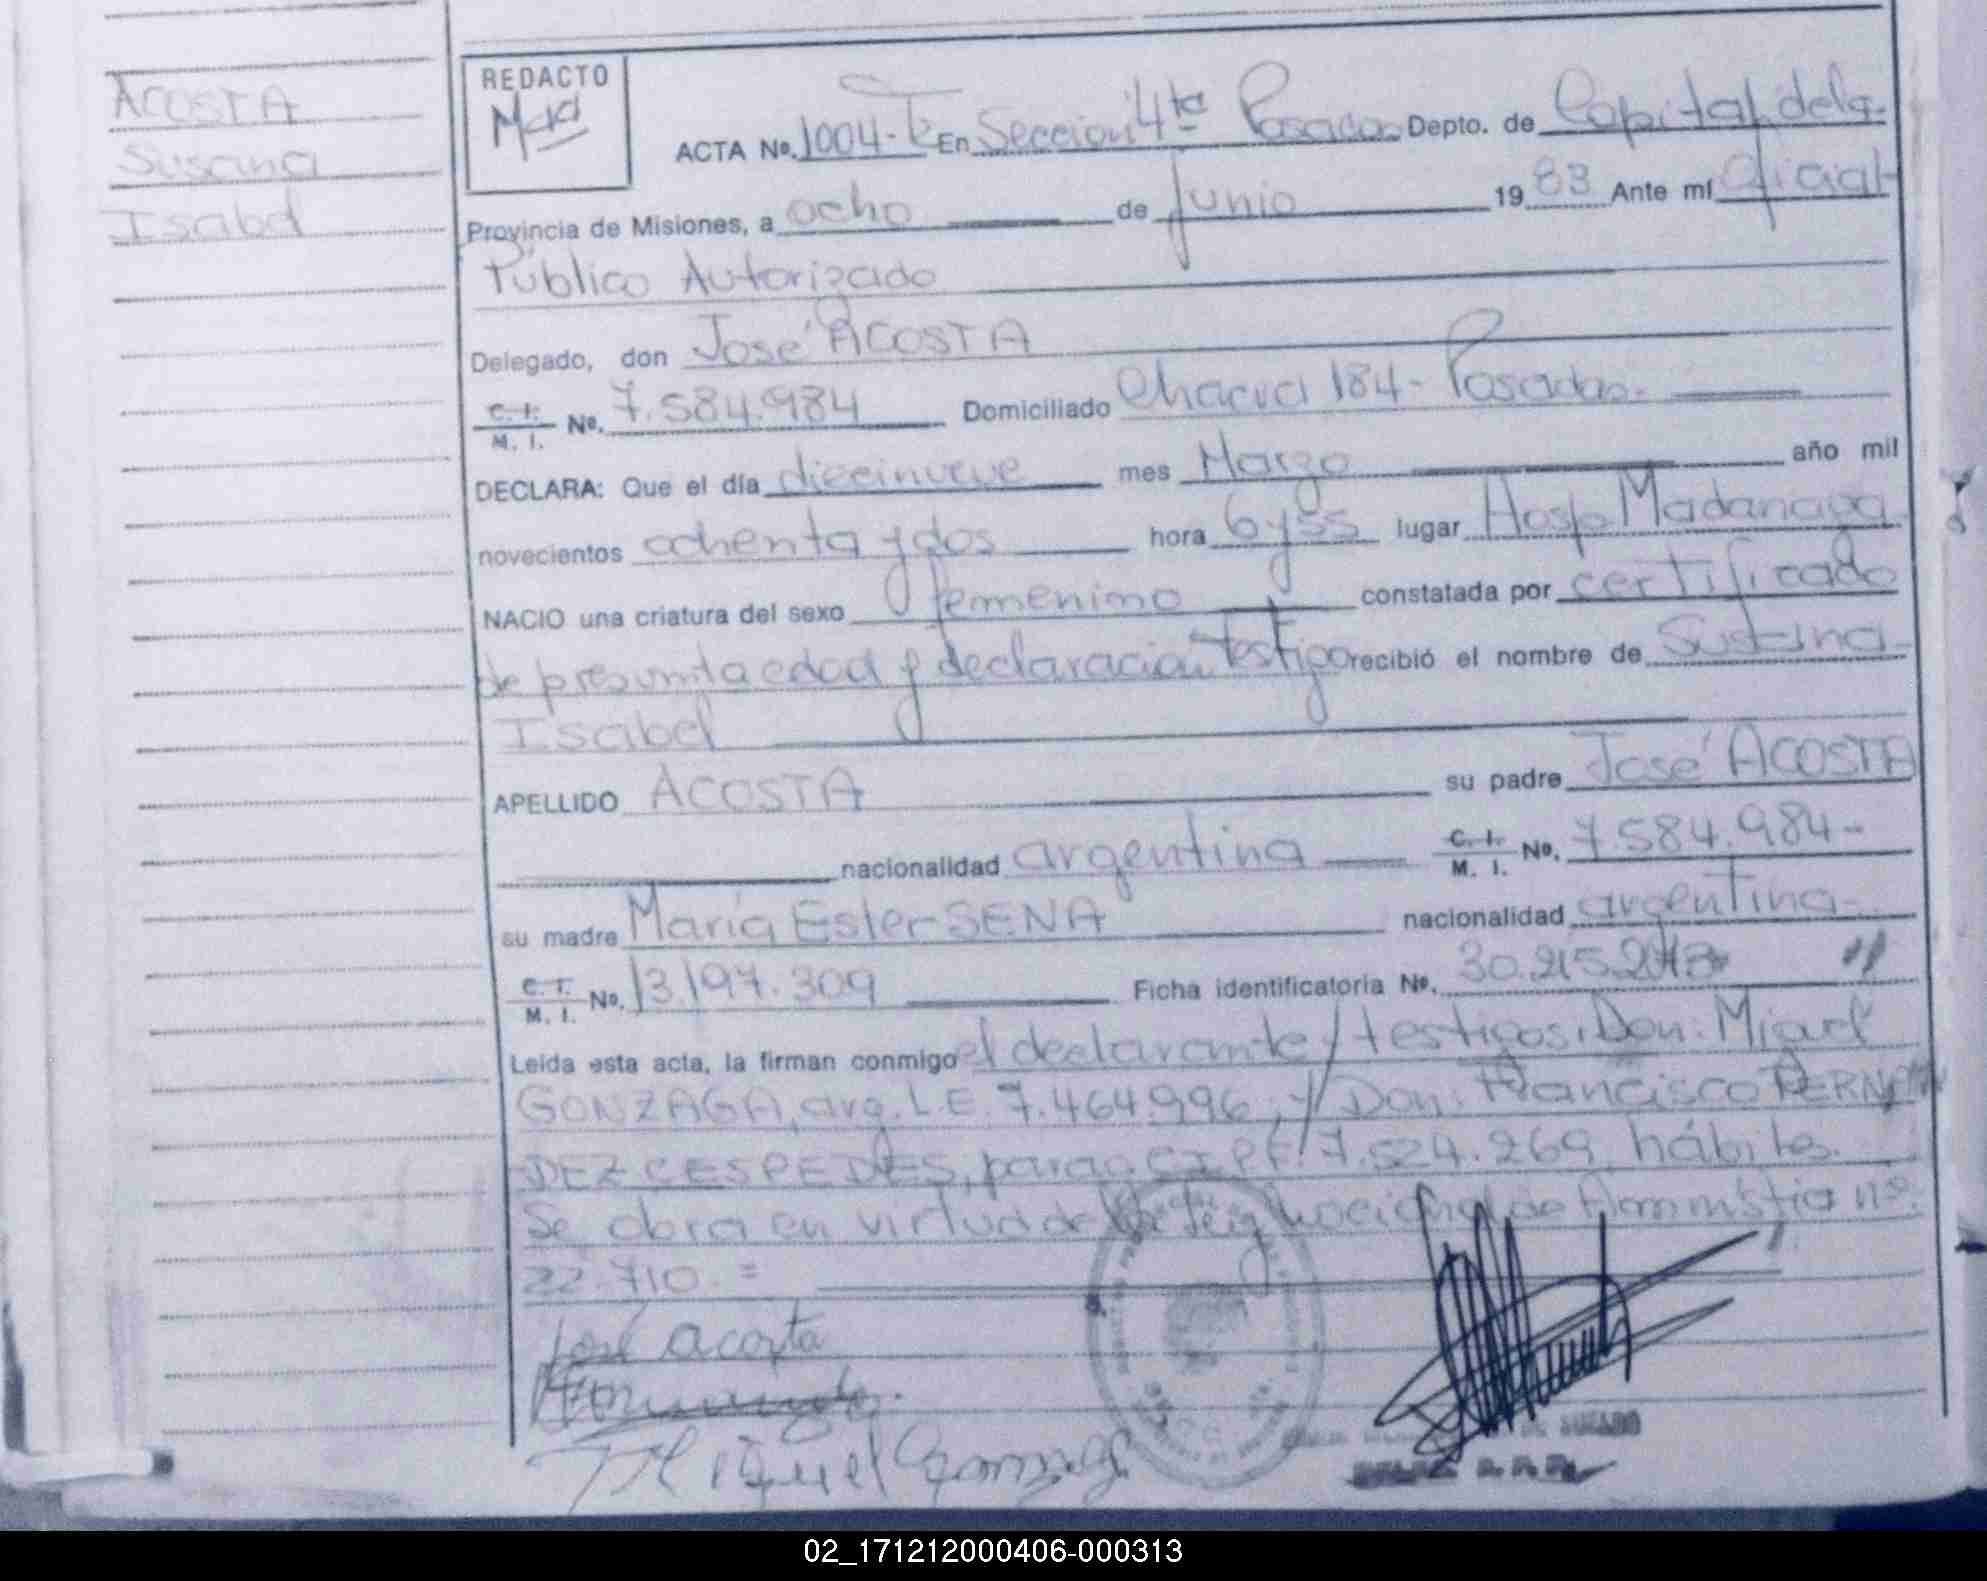 ACOSTA
Susana
Isabel
REDACTO
ACTA Nº. 1004-T En Sección 4ta Posadas Depto. de Capital de la
Provincia de Misiones, a ocho de Junio 19 83 Ante mí Oficial
Público Autorizado
Delegado, don José ACOSTA
C. I. M. I. Nº. 7.584.984 Domiciliado Chacra 184 - Posadas.
DECLARA: Que el día diecinueve mes Marzo año mil
novecientos ochenta y dos hora 6 y 55 lugar Hosp Madariaga
NACIO una criatura del sexo femenino constatada por certificado
de presunta edad y declaración testigo recibió el nombre de Susana
Isabel
APELLIDO ACOSTA su padre José ACOSTA
nacionalidad argentina C. I. M. I. Nº. 7.584.984-
su madre María Ester SENA nacionalidad argentina-
C. I. M. I. Nº. 13.197.309 Ficha identificatoria Nº. "
Leída esta acta, la firman conmigo el declarante y testigos, Don: Miguel
GONZAGA, arg. L.E. 7.464.996, y Don: Francisco FERNAN
DEZ CESPEDES, parag. C.I.P.F. 7.524.269, hábiles.
Se obra en virtud de la Ley Nacional de Amnistía nº
22.710.=
José Acosta
Miguel Gonzaga
02_171212000406-000313